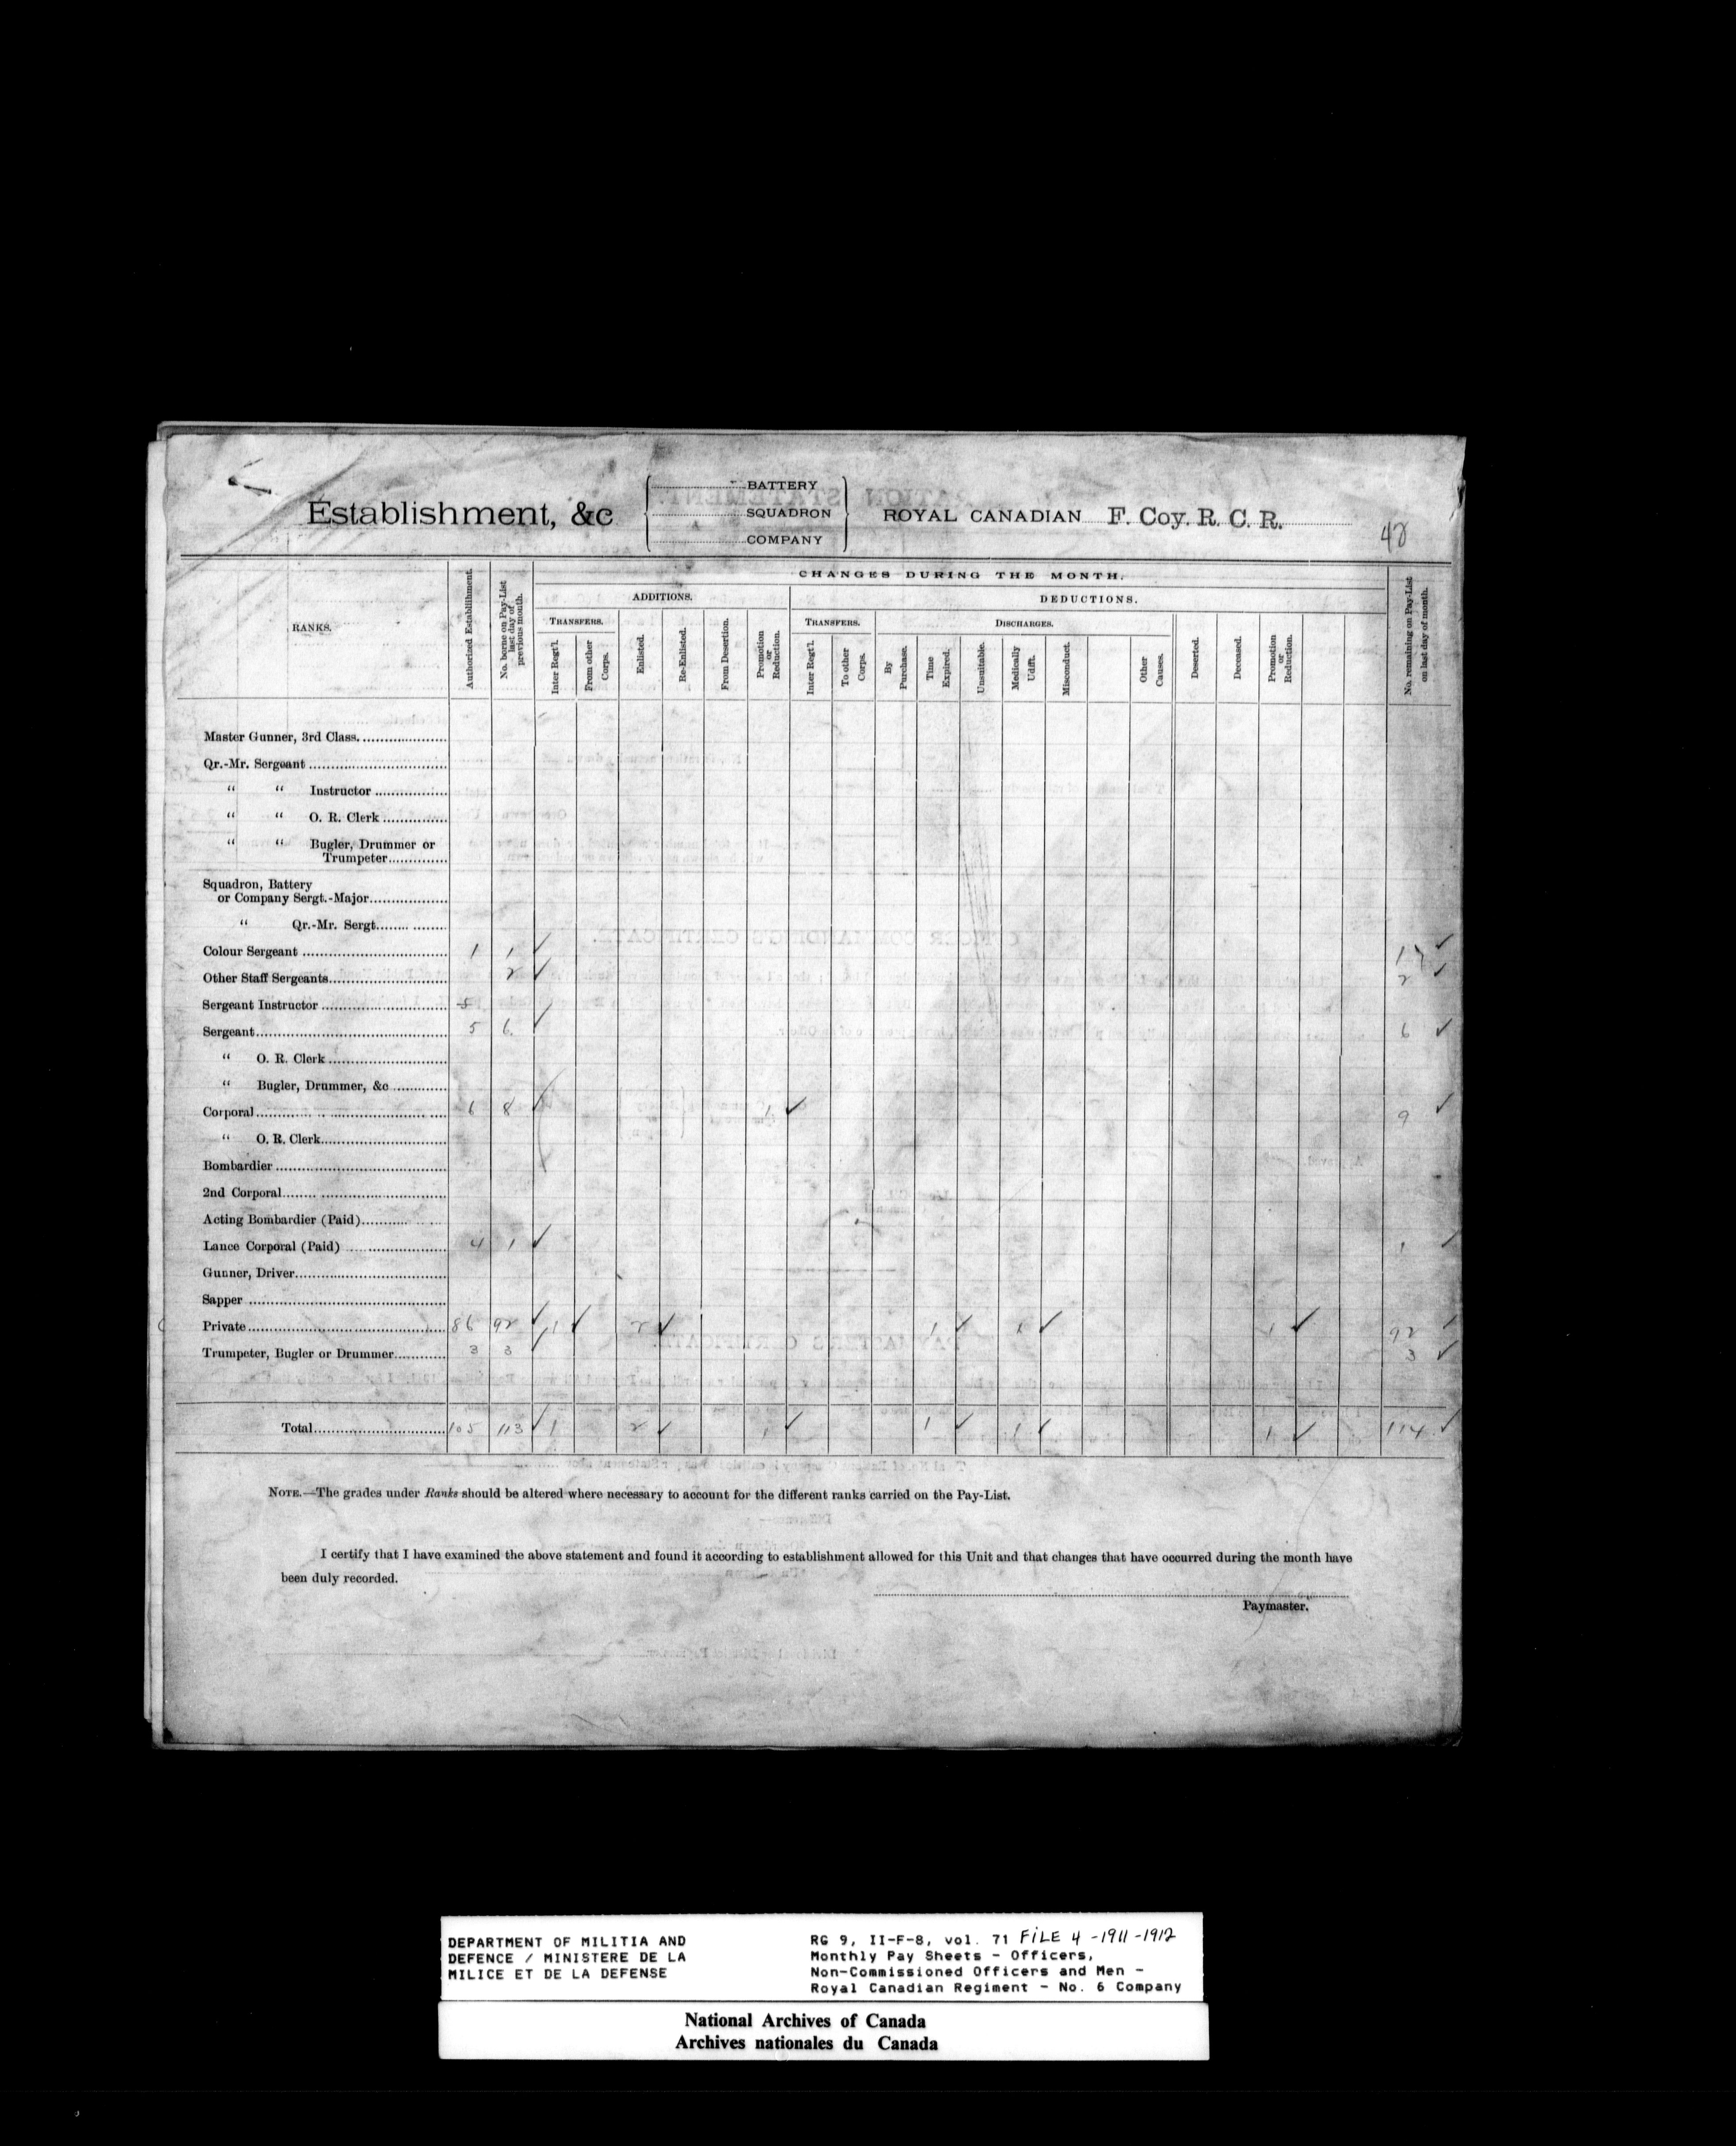 Establishment, &c
BATTERY
SQUADRON
COMPANY
ROYAL CANADIAN F. Coy. R. C. R.
48
RANKS.
Authorized Establishment.
No. borne on Pay-List last day of previous month.
CHANGES DURING THE MONTH.
ADDITIONS.
DEDUCTIONS.
TRANSFERS.
TRANSFERS.
DISCHARGES.
Inter Regt'l.
From other Corps.
Enlisted.
Re-Enlisted.
From Desertion.
Promotion or Reduction.
Inter Regt'l.
To other Corps.
By Purchase.
Time Expired.
Unsuitable.
Medically Udfft.
Misconduct.
Other Causes.
Deserted.
Deceased.
Promotion or Reduction.
No. remaining on Pay-List on last day of month.
Master Gunner, 3rd Class.
Qr.-Mr. Sergeant
“ “ Instructor
“ “ O. R. Clerk
“ “ Bugler, Drummer or
Trumpeter
Squadron, Battery
or Company Sergt.-Major
“ Qr.-Mr. Sergt.
Colour Sergeant 1 1 ✓ 1 ✓
Other Staff Sergeants 2 ✓ 2 ✓
Sergeant Instructor 5
Sergeant 5 6 ✓ 6 ✓
“ O. R. Clerk
“ Bugler, Drummer, &c
Corporal 6 8 ✓ 1 ✓ 9 ✓
“ O. R. Clerk
Bombardier
2nd Corporal
Acting Bombardier (Paid)
Lance Corporal (Paid) 4 1 ✓ 1 ✓
Gunner, Driver
Sapper
Private 86 92 ✓ 1 ✓ 2 ✓ 1 ✓ 1 ✓ 1 ✓ 92 ✓
Trumpeter, Bugler or Drummer 3 3 ✓ 3 ✓
Total 105 113 ✓ 1 2 ✓ 1 ✓ 1 ✓ 1 ✓ 1 ✓ 114 ✓
NOTE.—The grades under Ranks should be altered where necessary to account for the different ranks carried on the Pay-List.
I certify that I have examined the above statement and found it according to establishment allowed for this Unit and that changes that have occurred during the month have
been duly recorded.
Paymaster.
DEPARTMENT OF MILITIA AND
DEFENCE / MINISTERE DE LA
MILICE ET DE LA DEFENSE
RG 9, II-F-8, vol. 71 FILE 4 -1911-1912
Monthly Pay Sheets - Officers,
Non-Commissioned Officers and Men -
Royal Canadian Regiment - No. 6 Company
National Archives of Canada
Archives nationales du Canada